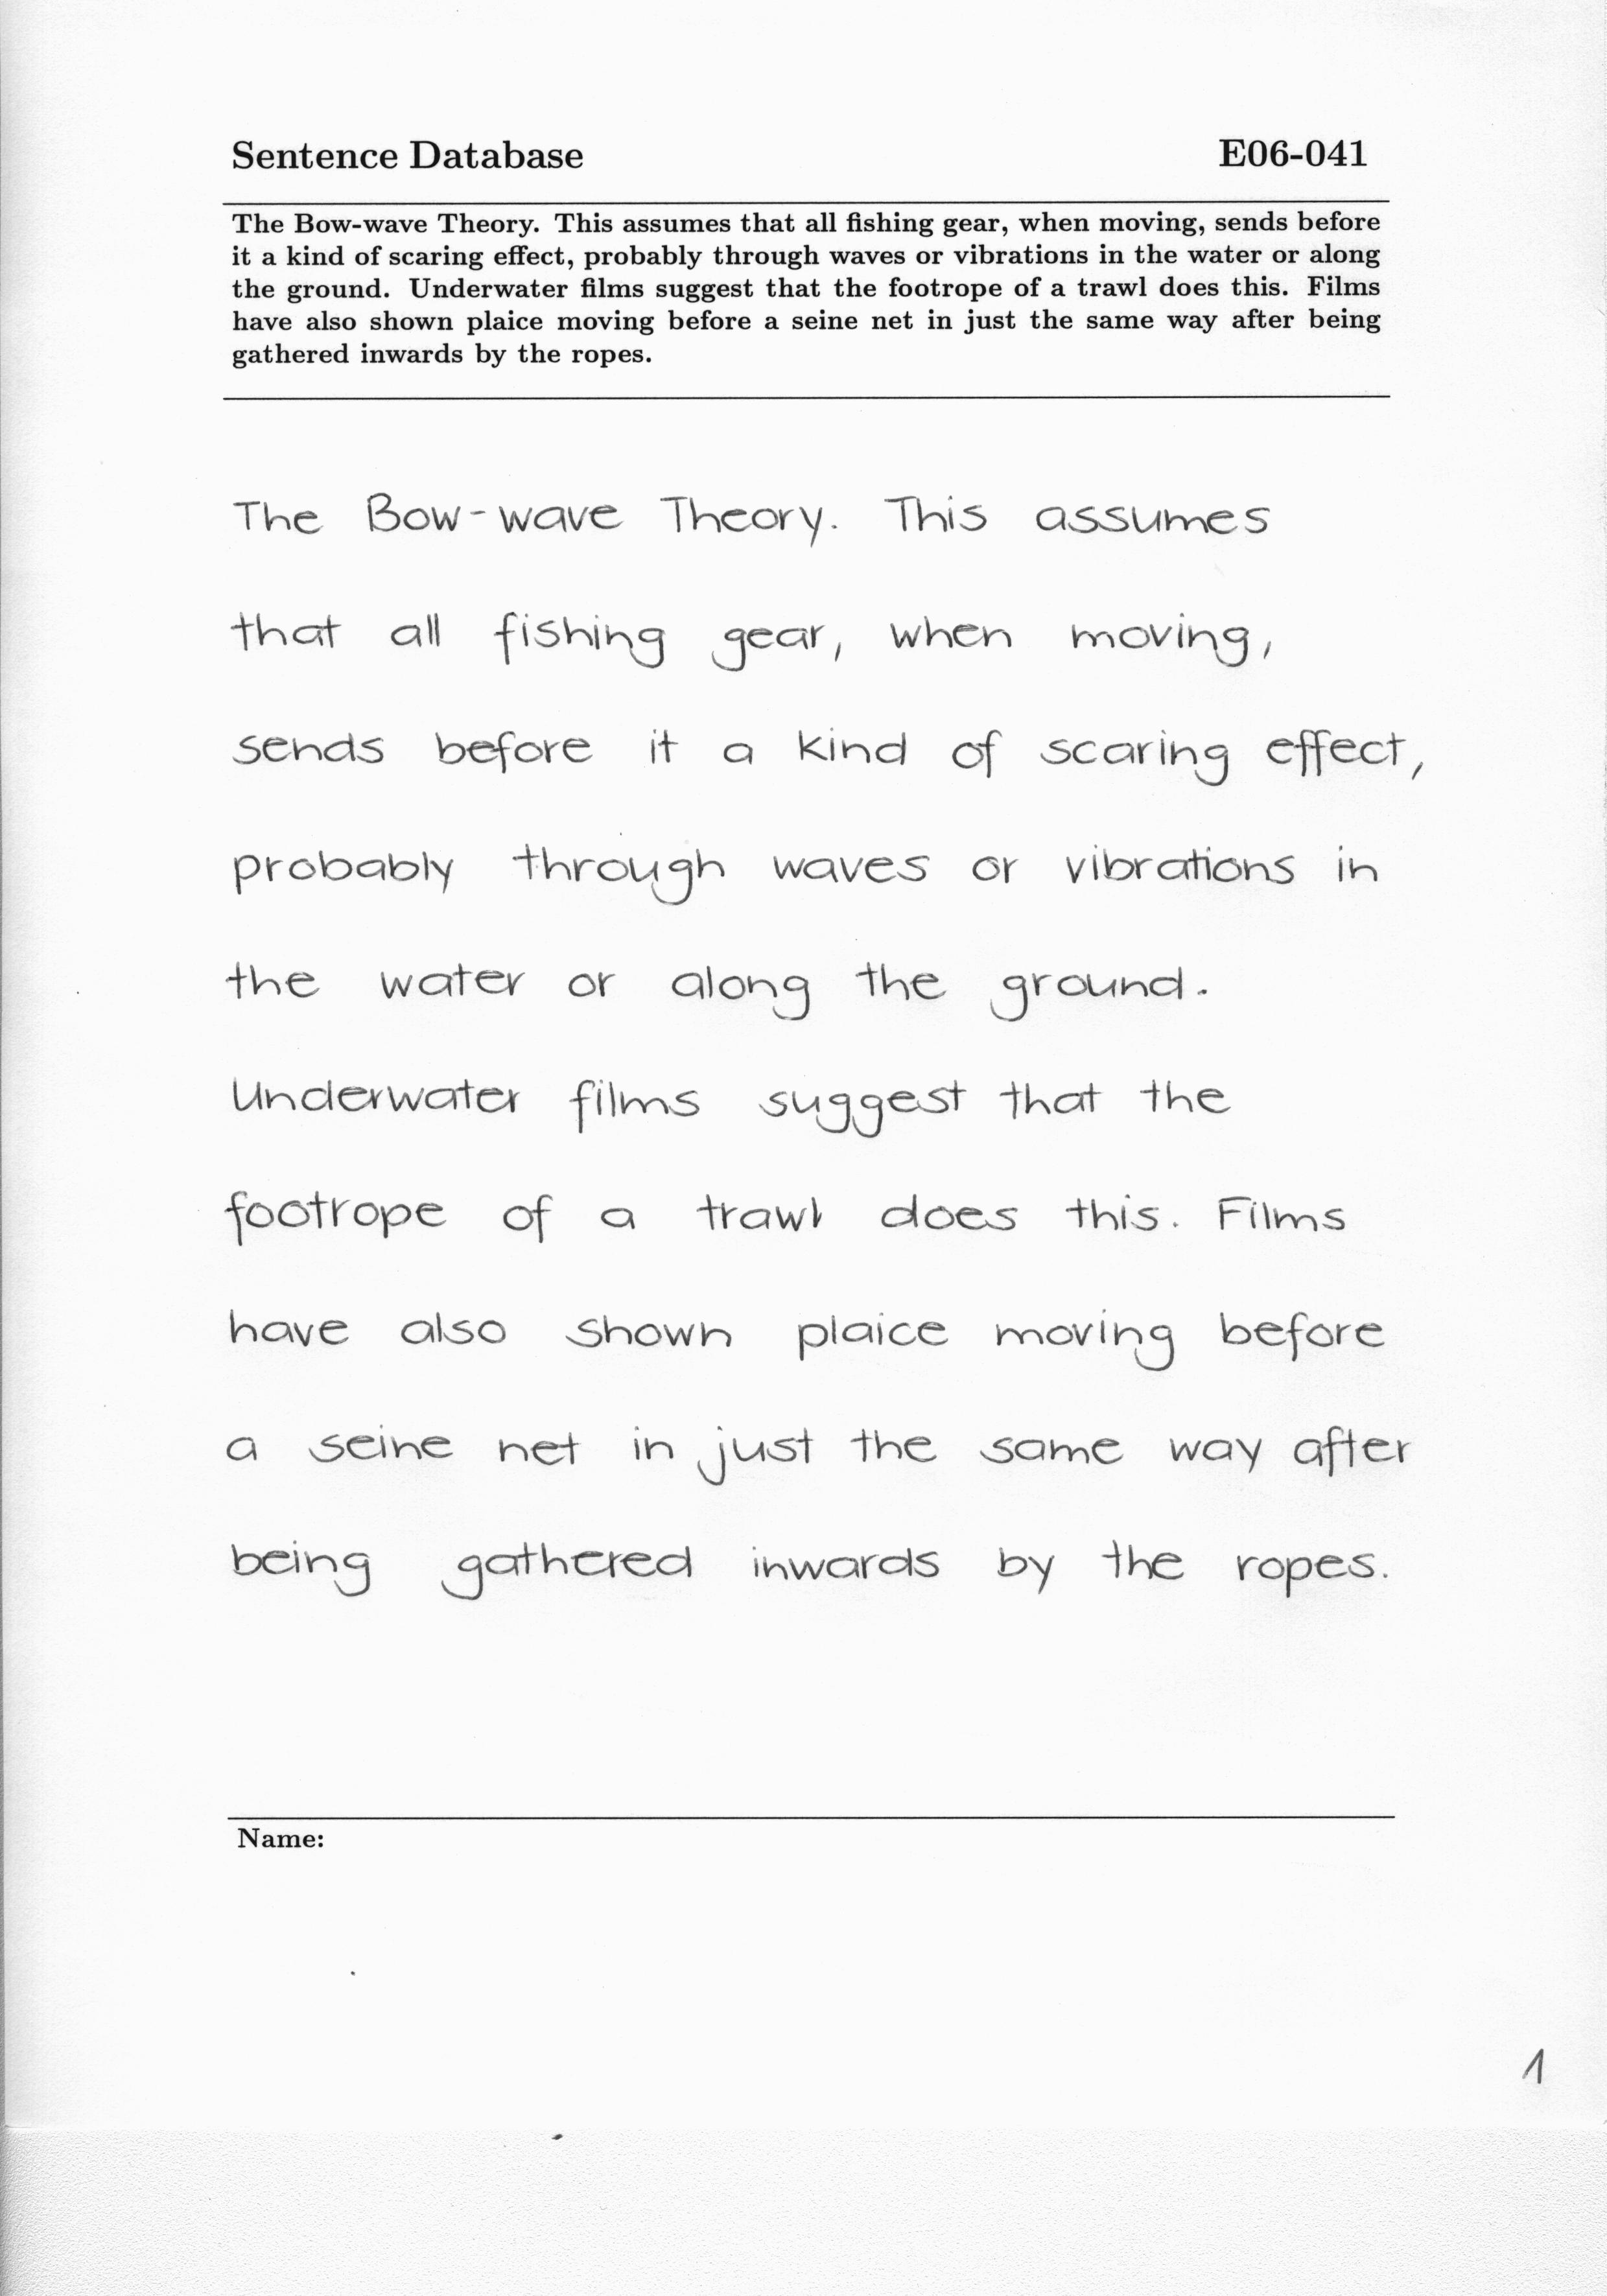 Sentence Database E06-041
The Bow-wave Theory. This assumes that all fishing gear, when moving, sends before
it a kind of scaring effect, probably through waves or vibrations in the water or along
the ground. Underwater films suggest that the footrope of a trawl does this. Films
have also shown plaice moving before a seine net in just the same way after being
gathered inwards by the ropes.
The Bow-wave Theory. This assumes
that all fishing gear, when moving,
sends before it a kind of scaring effect,
probably through waves or vibrations in
the water or along the ground.
Underwater films suggest that the
footrope of a trawl does this. Films
have also shown plaice moving before
a seine net in just the same way after
being gathered inwards by the ropes.
Name:
1